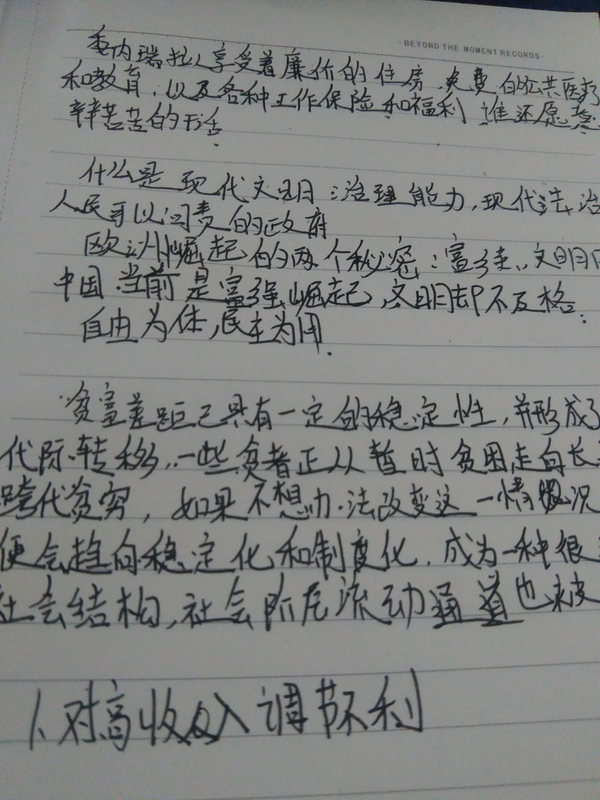 ·BEYOND THE MOMENT RECORDS·
委内瑞拉人享受着廉价的住房,免费的公共医疗
和教育,以及各种工作保险和福利 谁还愿意
辛辛苦苦的干活
什么是现代文明:治理能力,现代法治
人民可以问责的政府
欧洲崛起的两个秘密:富强、文明
中国当前是富强崛起,文明却不及格:
自由为体,民主为用.
贫富差距已具有一定的稳定性,并形成了
代际转移,一些贫者正从暂时贫困走向长
跨代贫穷,如果不想办法改变这一情况
便会趋向稳定化和制度化,成为一种很
社会结构,社会阶层流动通道也被
1、对高收入调节不利